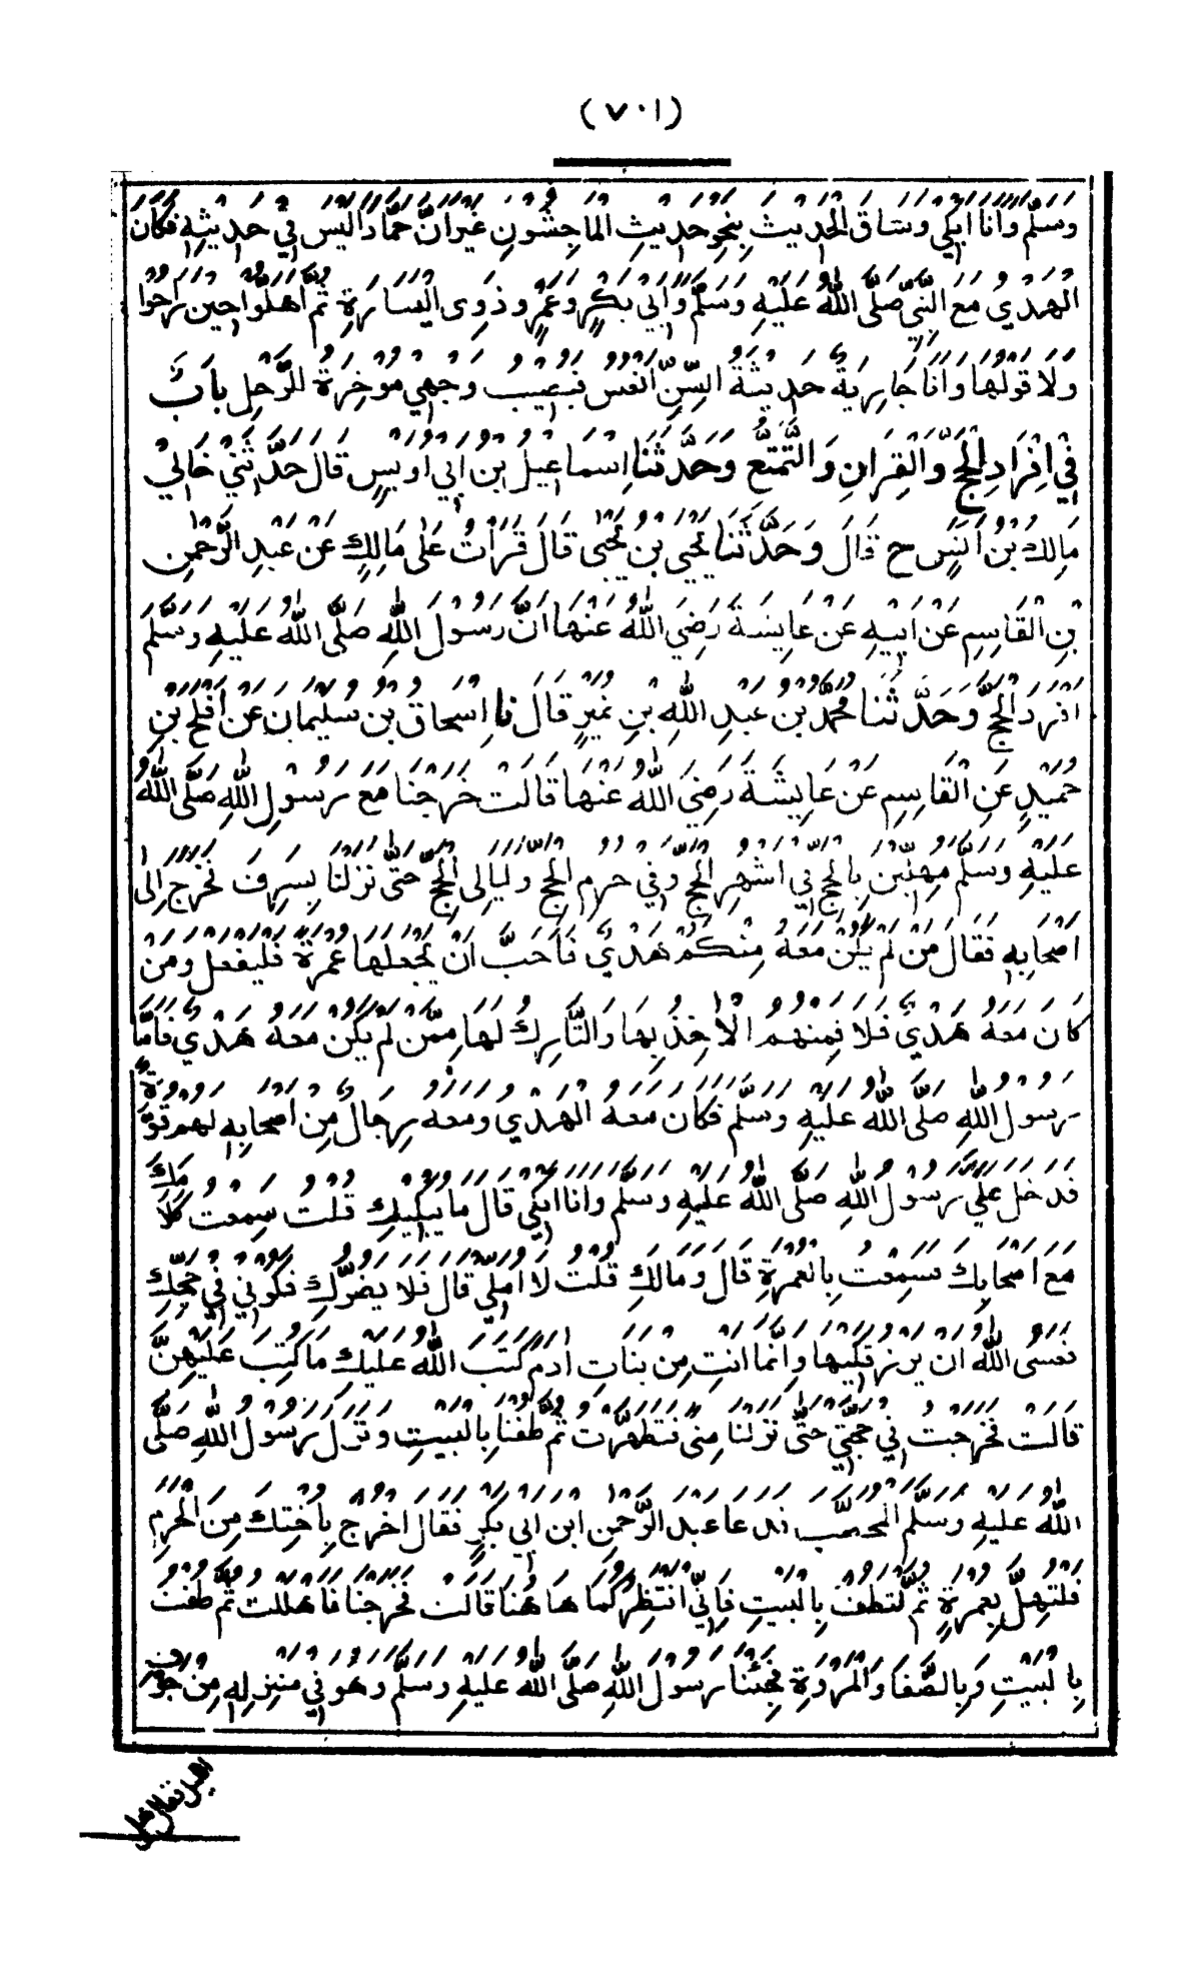 (٧٠١)
وَسَلَّمَ وَأَنَا أَبْكِي وَسَاقَ الْحَدِيثَ بِنَحْوِ حَدِيثِ الْمَاجِشُونِ غَيْرَ أَنَّ حَمَّادًا لَيْسَ فِي حَدِيثِهِ فَكَانَ
الْهَدْيُ مَعَ النَّبِيِّ صَلَّى اللَّهُ عَلَيْهِ وَسَلَّمَ وَأَبِي بَكْرٍ وَعُمَرَ وَذَوِي الْيَسَارَةِ ثُمَّ أَهَلُّوا حِينَ رَاحُوا
وَلَا قَوْلُهَا وَأَنَا جَارِيَةٌ حَدِيثَةُ السِّنِّ أَنْعُسُ فَيُصِيبُ وَجْهِي مُؤْخِرَةُ الرَّحْلِ بَابٌ
فِي إِفْرَادِ الْحَجِّ وَالْقِرَانِ وَالتَّمَتُّعِ وَحَدَّثَنَا إِسْمَاعِيلُ بْنُ أَبِي أُوَيْسٍ قَالَ حَدَّثَنِي خَالِي
مَالِكُ بْنُ أَنَسٍ ح قَالَ وَحَدَّثَنَا يَحْيَى بْنُ يَحْيَى قَالَ قَرَأْتُ عَلَى مَالِكٍ عَنْ عَبْدِ الرَّحْمٰنِ
بْنِ الْقَاسِمِ عَنْ أَبِيهِ عَنْ عَايِشَةَ رَضِيَ اللَّهُ عَنْهَا أَنَّ رَسُولَ اللَّهِ صَلَّى اللَّهُ عَلَيْهِ وَسَلَّمَ
أَفْرَدَ الْحَجَّ وَحَدَّثَنَا مُحَمَّدُ بْنُ عَبْدِ اللَّهِ بْنِ نُمَيْرٍ قَالَ نَا إِسْحَاقُ بْنُ سُلَيْمَانَ عَنْ أَفْلَحَ بْنِ
حُمَيْدٍ عَنِ الْقَاسِمِ عَنْ عَايِشَةَ رَضِيَ اللَّهُ عَنْهَا قَالَتْ خَرَجْنَا مَعَ رَسُولِ اللَّهِ صَلَّى اللَّهُ
عَلَيْهِ وَسَلَّمَ مُهِلِّينَ بِالْحَجِّ فِي أَشْهُرِ الْحَجِّ وَفِي حُرُمِ الْحَجِّ وَلَيَالِي الْحَجِّ حَتَّى نَزَلْنَا بِسَرِفَ فَخَرَجَ إِلَى
أَصْحَابِهِ فَقَالَ مَنْ لَمْ يَكُنْ مَعَهُ مِنْكُمْ هَدْيٌ فَأَحَبَّ أَنْ يَجْعَلَهَا عُمْرَةً فَلْيَفْعَلْ وَمَنْ
كَانَ مَعَهُ هَدْيٌ فَلَا فَمِنْهُمُ الْآخِذُ بِهَا وَالتَّارِكُ لَهَا مِمَّنْ لَمْ يَكُنْ مَعَهُ هَدْيٌ فَأَمَّا
رَسُولُ اللَّهِ صَلَّى اللَّهُ عَلَيْهِ وَسَلَّمَ فَكَانَ مَعَهُ الْهَدْيُ وَمَعَهُ رِجَالٌ مِنْ أَصْحَابِهِ لَهُمْ قُوَّةٌ
فَدَخَلَ عَلَيَّ رَسُولُ اللَّهِ صَلَّى اللَّهُ عَلَيْهِ وَسَلَّمَ وَأَنَا أَبْكِي قَالَ مَا يُبْكِيكِ قُلْتُ سَمِعْتُ كَلَامَكَ
مَعَ أَصْحَابِكَ فَسَمِعْتُ بِالْعُمْرَةِ قَالَ وَمَالَكِ قُلْتُ لَا أُصَلِّي قَالَ فَلَا يَضُرُّكِ فَكُونِي فِي حَجِّكِ
فَعَسَى اللَّهُ أَنْ يَرْزُقَكِيهَا وَإِنَّمَا أَنْتِ مِنْ بَنَاتِ آدَمَ كَتَبَ اللَّهُ عَلَيْكِ مَا كَتَبَ عَلَيْهِنَّ
قَالَتْ فَخَرَجْتُ فِي حَجَّتِي حَتَّى نَزَلْنَا مِنًى فَتَطَهَّرْتُ ثُمَّ طُفْنَا بِالْبَيْتِ وَنَزَلَ رَسُولُ اللَّهِ صَلَّى
اللَّهُ عَلَيْهِ وَسَلَّمَ الْمُحَصَّبَ فَدَعَا عَبْدَ الرَّحْمٰنِ ابْنَ أَبِي بَكْرٍ فَقَالَ اخْرُجْ بِأُخْتِكَ مِنَ الْحَرَمِ
فَلْتُهِلَّ بِعُمْرَةٍ ثُمَّ لْتَطُفْ بِالْبَيْتِ فَإِنِّي أَنْتَظِرُكُمَا هَا هُنَا قَالَتْ فَخَرَجْنَا فَأَهْلَلْتُ ثُمَّ طُفْتُ
بِالْبَيْتِ وَبِالصَّفَا وَالْمَرْوَةِ فَجِئْنَا رَسُولَ اللَّهِ صَلَّى اللَّهُ عَلَيْهِ وَسَلَّمَ وَهُوَ فِي مَنْزِلِهِ مِنْ جَوْفِ